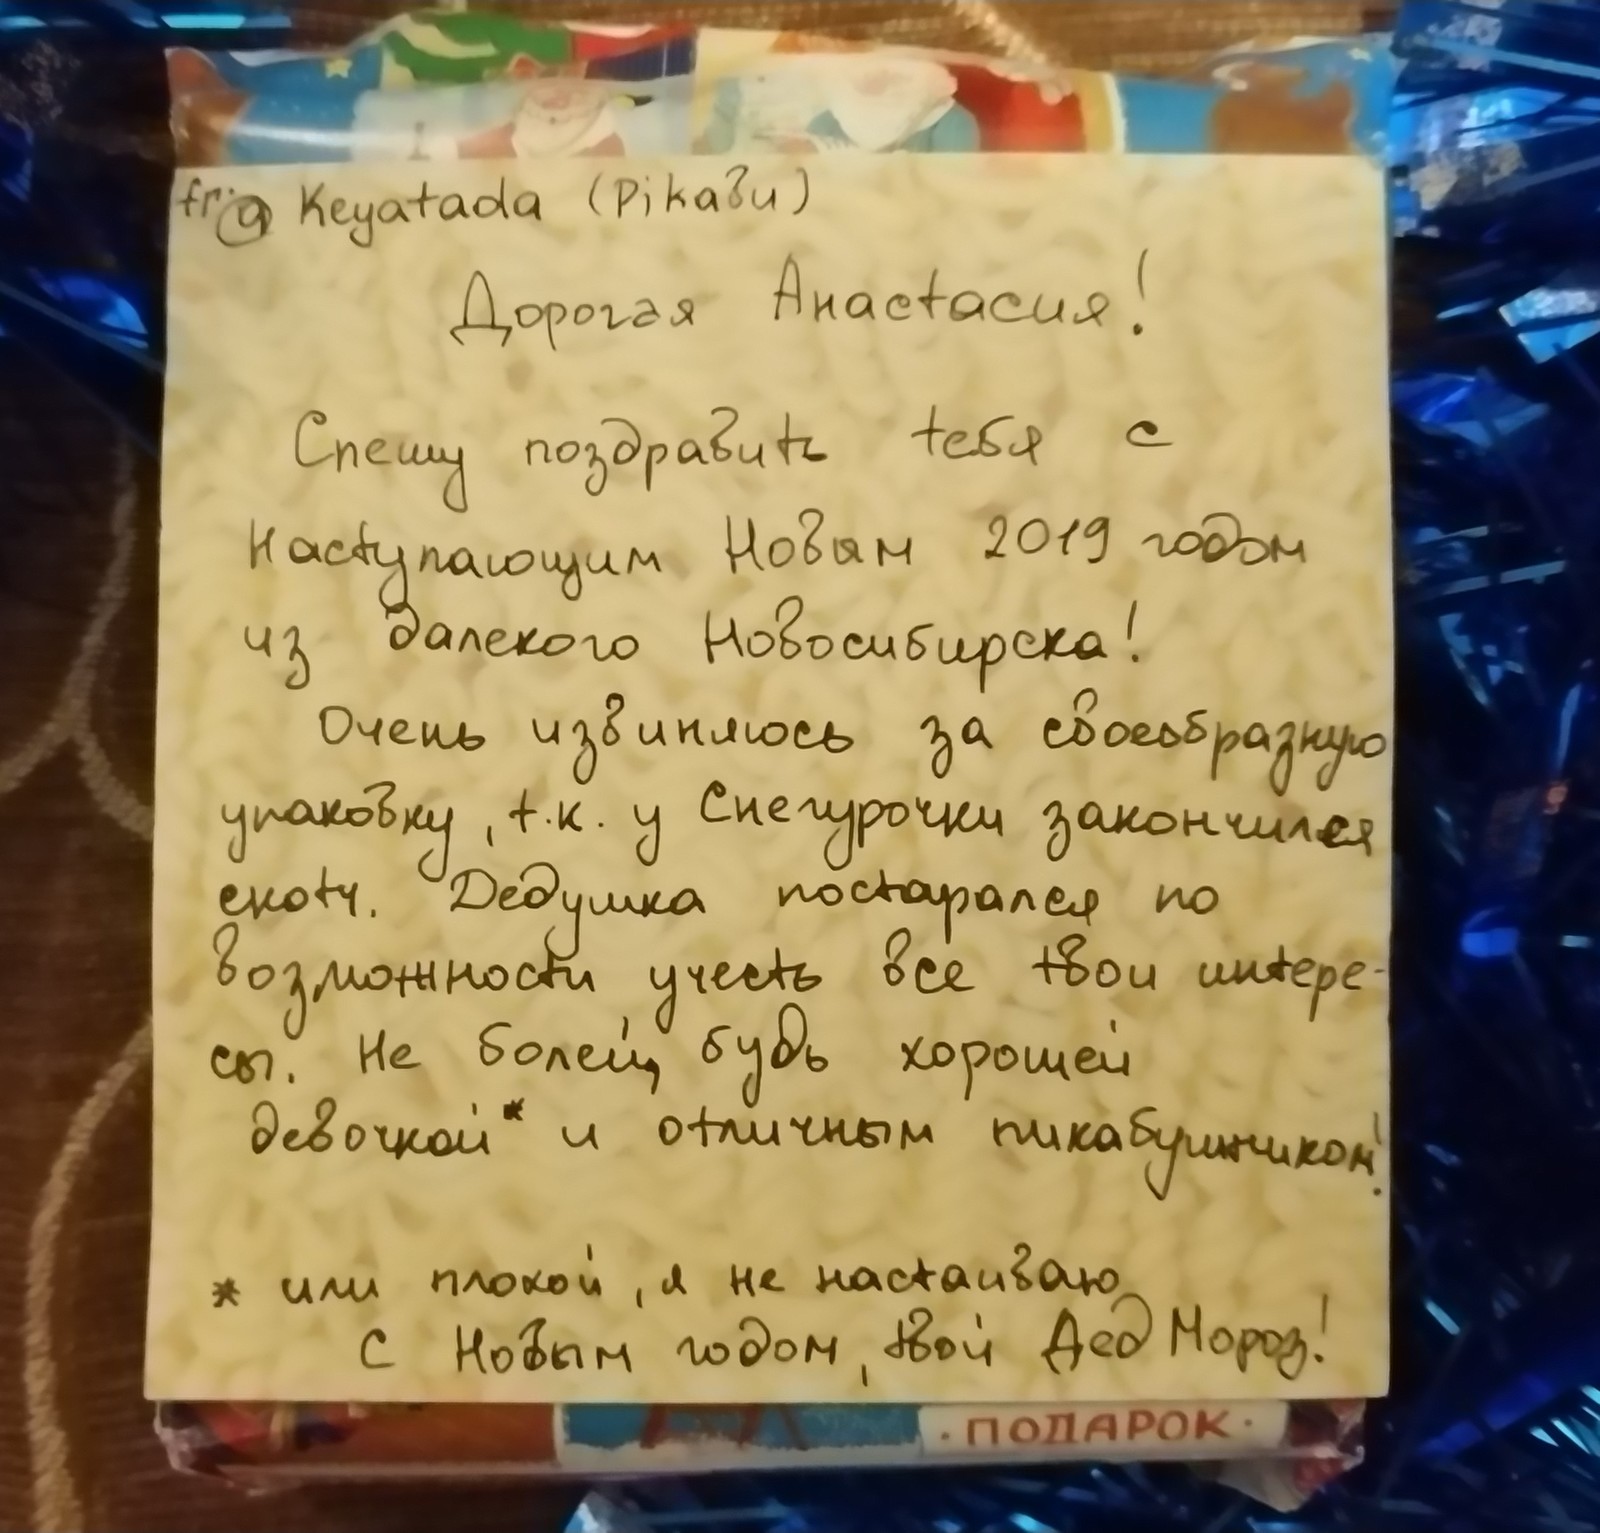 fr. @ Keyatada (Pikaбu)
Дорогая Анастасия!
Спешу поздравить тебя с
Наступающим Новым 2019 годом
из далекого Новосибирска!
Очень извиняюсь за своеобразную
упаковку, т.к. у Снегурочки закончился
скотч. Дедушка постарался по
возможности учесть все твои интере-
сы. Не болей, будь хорошей
девочкой* и отличным пикабушником!
* или плохой, я не настаиваю
С Новым годом, твой Дед Мороз!
·ПОДАРОК·